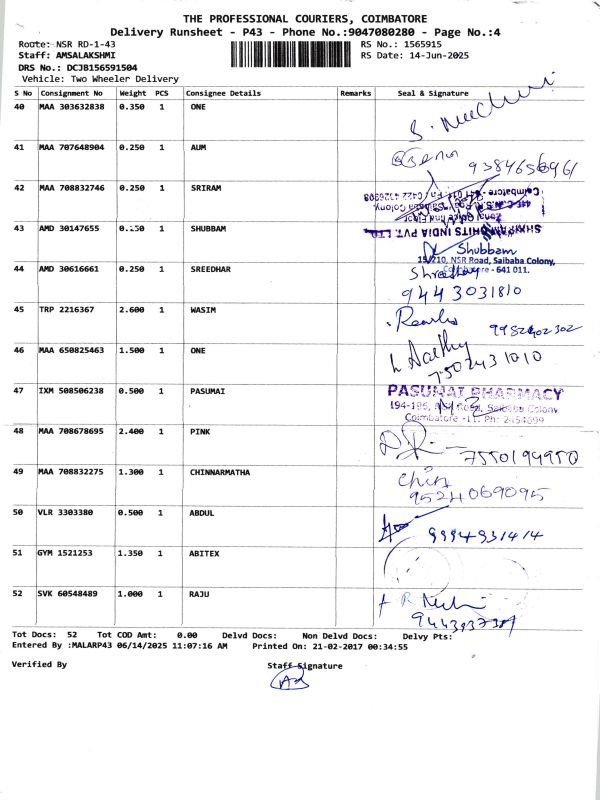 THE PROFESSIONAL COURIERS, COIMBATORE
Delivery Runsheet - P43 - Phone No.:9047080280 - Page No.:4
Route: NSR RD-1-43 RS No.: 1565915
Staff: AMSALAKSHMI RS Date: 14-Jun-2025
DRS No.: DCJB156591504
Vehicle: Two Wheeler Delivery
S No Consignment No Weight PCS Consignee Details Remarks Seal & Signature
40 MAA 303632838 0.350 1 ONE
41 MAA 707648904 0.250 1 AUM
9384656961
42 MAA 708832746 0.250 1 SRIRAM
43 AMD 30147655 1 SHUBBAM
Shubbam
15/210, NSR Road, Saibaba Colony,
Coimbatore - 641 011.
44 AMD 30616661 0.250 1 SREEDHAR
9443031810
45 TRP 2216367 2.600 1 WASIM
46 MAA 650825463 1.500 1 ONE
7502431010
47 IXM 508506238 0.500 1 PASUMAI PASUMAI PHARMACY
194-196, NSR Road, Saibaba Colony
Coimbatore -11. Ph: 2454699
48 MAA 708678695 2.400 1 PINK
7550194950
49 MAA 708832275 1.300 1 CHINNARMATHA
9524069095
50 VLR 3303380 0.500 1 ABDUL
9994931414
51 GYM 1521253 1.350 1 ABITEX
52 SVK 60548489 1.000 1 RAJU
Tot Docs: 52 Tot COD Amt: 0.00 Delvd Docs: Non Delvd Docs: Delvy Pts:
Entered By :MALARP43 06/14/2025 11:07:16 AM Printed On: 21-02-2017 00:34:55
Verified By Staff Signature